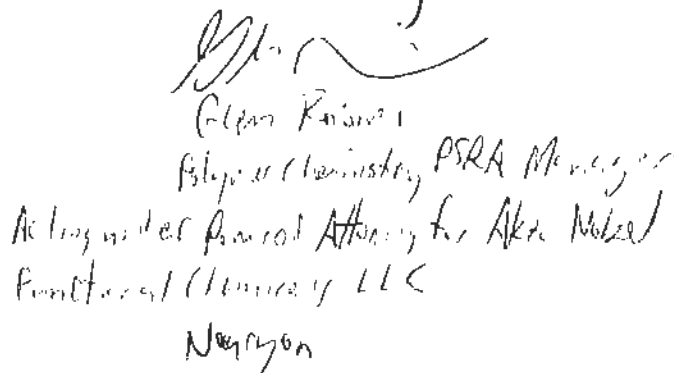 Glenn
Polymer Chemistry PSRA Manager
Acting under Power of Attorney for Akzo Nobel
Functional Chemicals LLC
Nouryon